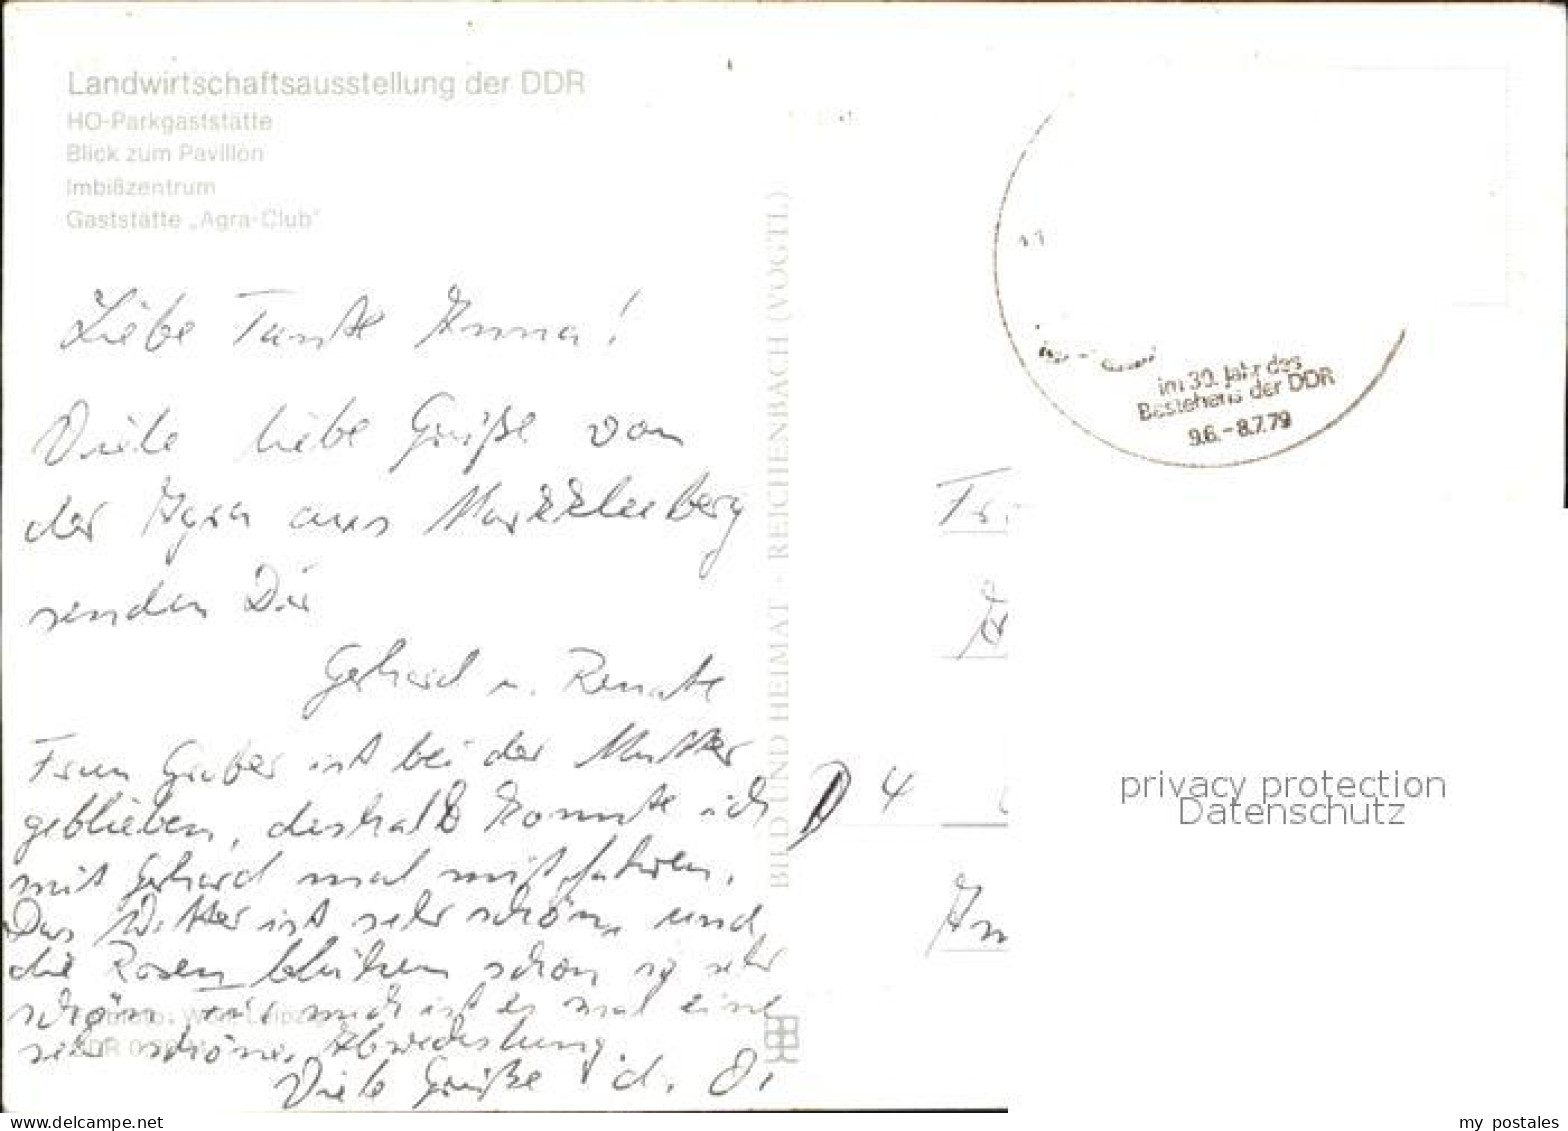 Landwirtschaftsausstellung der DDR
HO-Parkgaststätte
Blick zum Pavillon
Imbißzentrum
Gaststätte „Agra-Club"
Liebe Tante Anna!
Viele liebe Grüße von
der Agra aus Markkleeberg
senden Dir
Gerhard u. Renate
Frau Gruber ist bei der Mutter
geblieben, deshalb konnte ich
mit Gerhard mal mitfahren.
Das Wetter ist sehr schön, und
die Rosen blühen schon so sehr
schön, für mich ist es mal eine
sehr schöne Abwechslung
Viele Grüße d. O.
BILD UND HEIMAT · REICHENBACH (VOGTL)
im 30. Jahr des
Bestehens der DDR
9.6.-8.7.79
D 4
privacy protection
Datenschutz
www.delcampe.net
my_postales